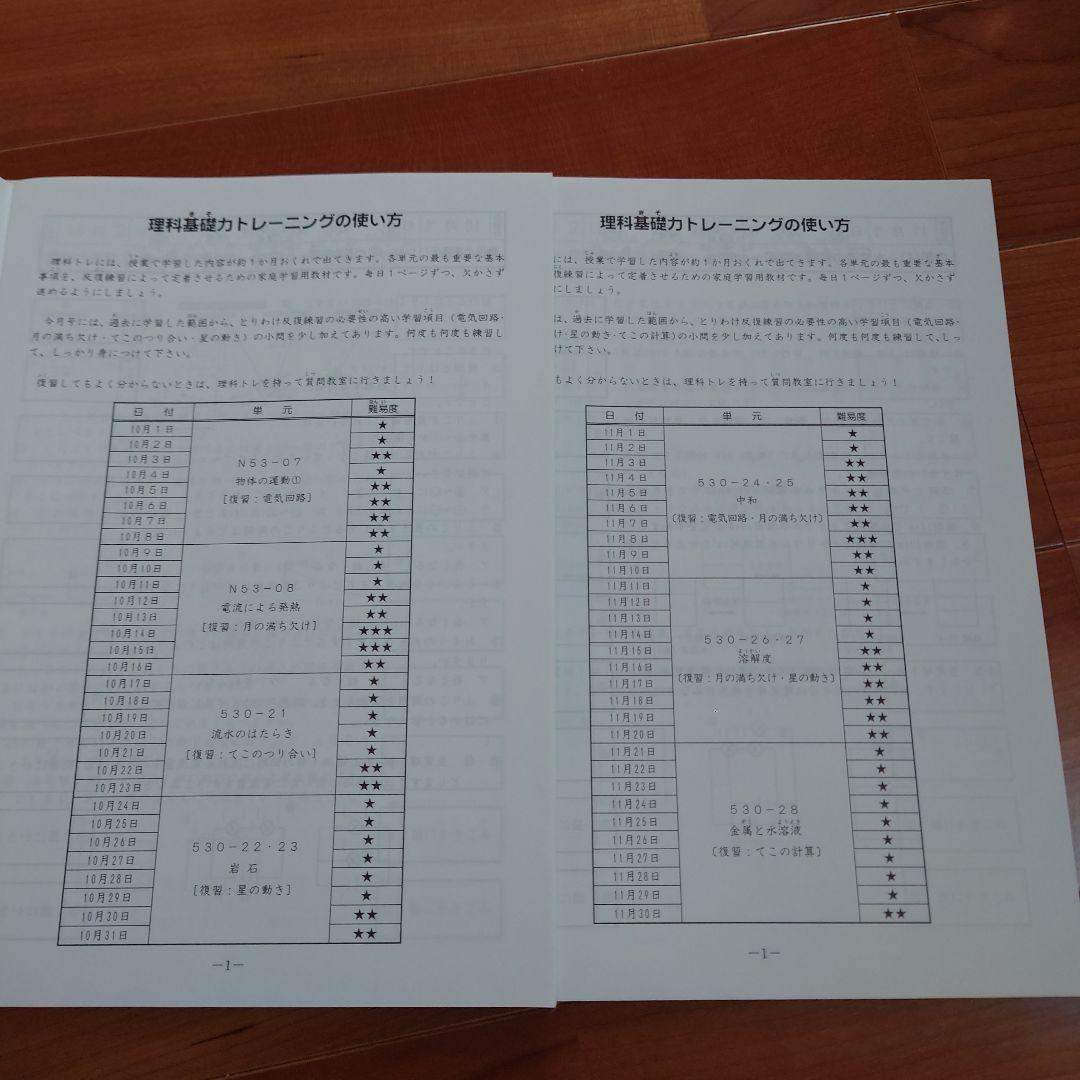 理科基礎力トレーニングの使い方
理科トレには、授業で学習した内容が約1か月おくれで出てきます。各単元の最も重要な基本
事項を、反復練習によって定着させるための家庭学習用教材です。毎日1ページずつ、欠かさず
進めるようにしましょう。
今月号には、過去に学習した範囲から、とりわけ反復練習の必要性の高い学習項目(電気回路・
月の満ち欠け・てこのつり合い・星の動き)の小問を少し加えてあります。何度も何度も練習し
て、しっかり身につけて下さい。
復習してもよく分からないときは、理科トレを持って質問教室に行きましょう!
日 付 単 元 難易度
10月1日 ★
10月2日 ★
10月3日 ★★
10月4日 ★
10月5日 ★★
10月6日 ★★
10月7日 ★★
10月8日 ★★
N53-07
物体の運動①
[復習:電気回路]
10月9日 ★
10月10日 ★
10月11日 ★
10月12日 ★★
10月13日 ★★
10月14日 ★★★
10月15日 ★★★
10月16日 ★★
N53-08
電流による発熱
[復習:月の満ち欠け]
10月17日 ★
10月18日 ★
10月19日 ★
10月20日 ★
10月21日 ★
10月22日 ★★
10月23日 ★★
530-21
流水のはたらき
[復習:てこのつり合い]
10月24日 ★
10月25日 ★
10月26日 ★
10月27日 ★
10月28日 ★
10月29日 ★
10月30日 ★★
10月31日 ★★
530-22・23
岩 石
[復習:星の動き]
-1-
理科基礎力トレーニングの使い方
には、授業で学習した内容が約1か月おくれで出てきます。各単元の最も重要な基本
復練習によって定着させるための家庭学習用教材です。毎日1ページずつ、欠かさず
にしましょう。
は、過去に学習した範囲から、とりわけ反復練習の必要性の高い学習項目(電気回路・
け・星の動き・てこの計算)の小問を少し加えてあります。何度も何度も練習して、しっ
けて下さい。
もよく分からないときは、理科トレを持って質問教室に行きましょう!
日 付 単 元 難易度
11月1日 ★
11月2日 ★
11月3日 ★★
11月4日 ★★
11月5日 ★★
11月6日 ★★
11月7日 ★★
11月8日 ★★★
11月9日 ★★
11月10日 ★★
530-24・25
中和
[復習:電気回路・月の満ち欠け]
11月11日 ★
11月12日 ★
11月13日 ★
11月14日 ★
11月15日 ★★
11月16日 ★★
11月17日 ★★
11月18日 ★★
11月19日 ★★
11月20日 ★★
530-26・27
溶解度
[復習:月の満ち欠け・星の動き]
11月21日 ★
11月22日 ★
11月23日 ★
11月24日 ★
11月25日 ★
11月26日 ★
11月27日 ★
11月28日 ★
11月29日 ★
11月30日 ★★
530-28
金属と水溶液
[復習:てこの計算]
-1-